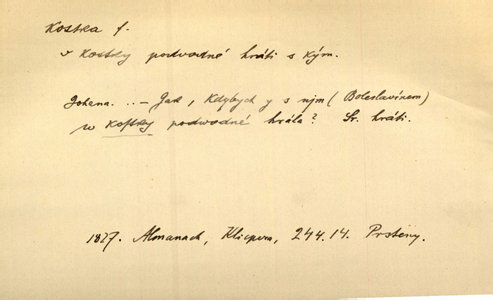 Kostka f.
v kostky podvodné hráti s kým.
Johena. .. — Jak, kdybych y s njm (Boleslavínem)
w kostky podwodné hrála? Sr. hráti.
1827. Almanach, Klicpera, 244.14. Prsteny.